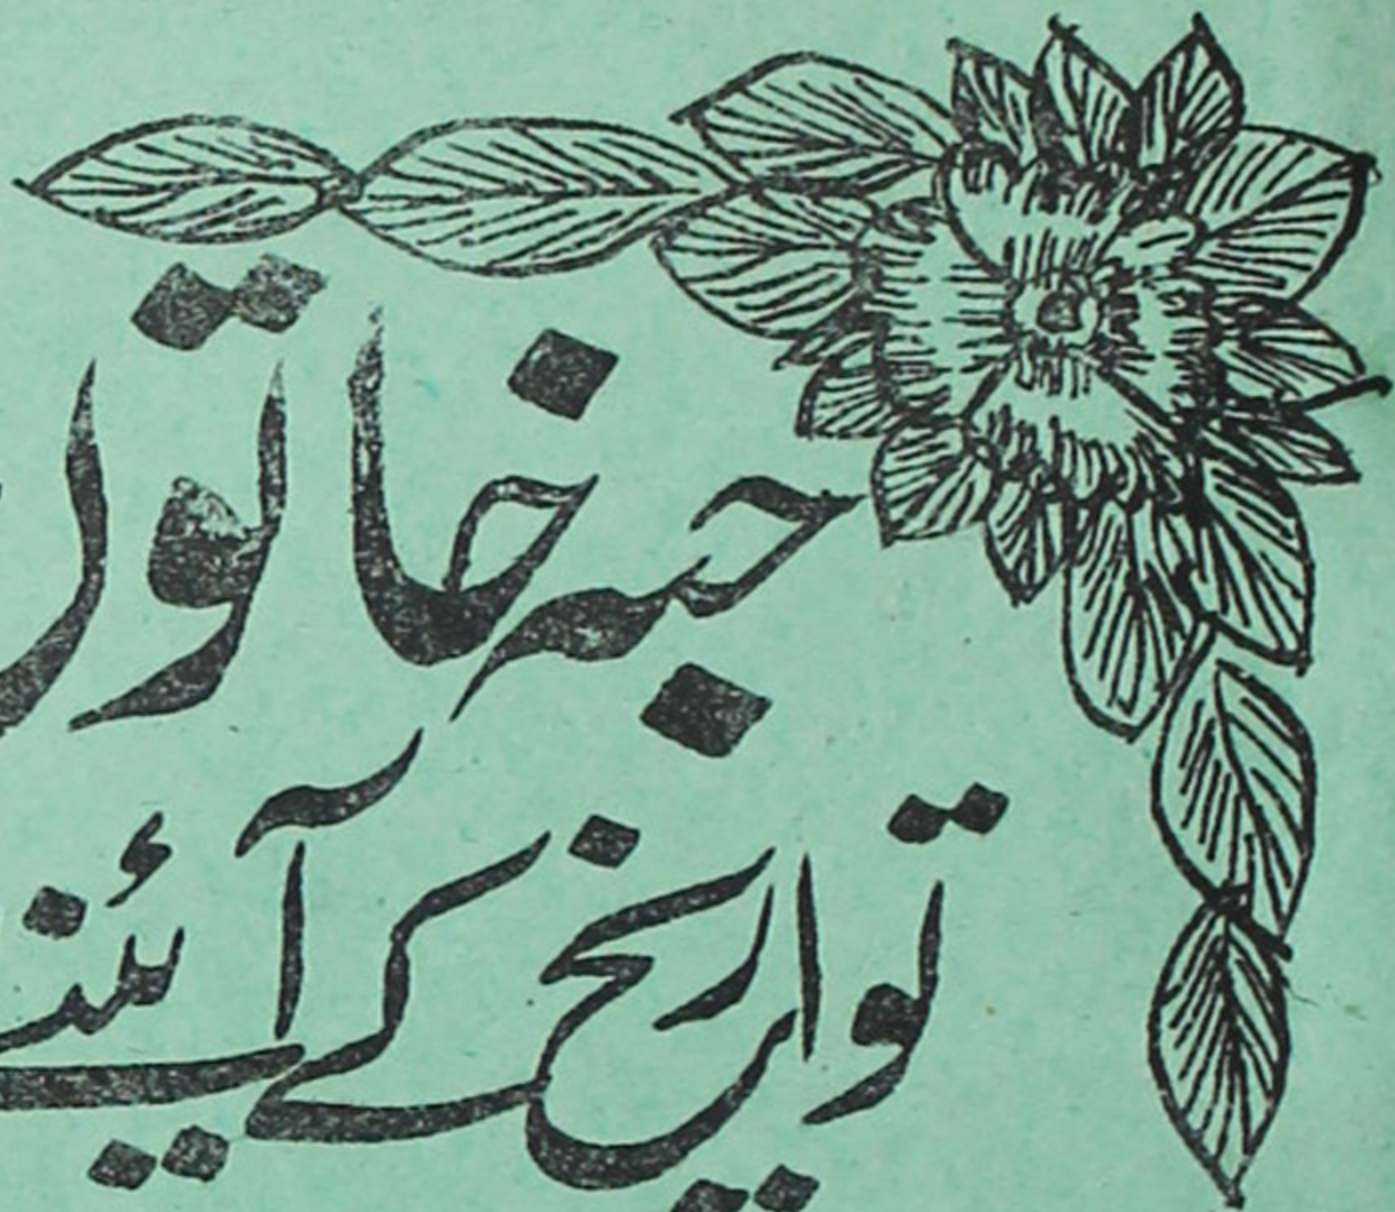 حبہ خاتون
تواریخ کے آئینے